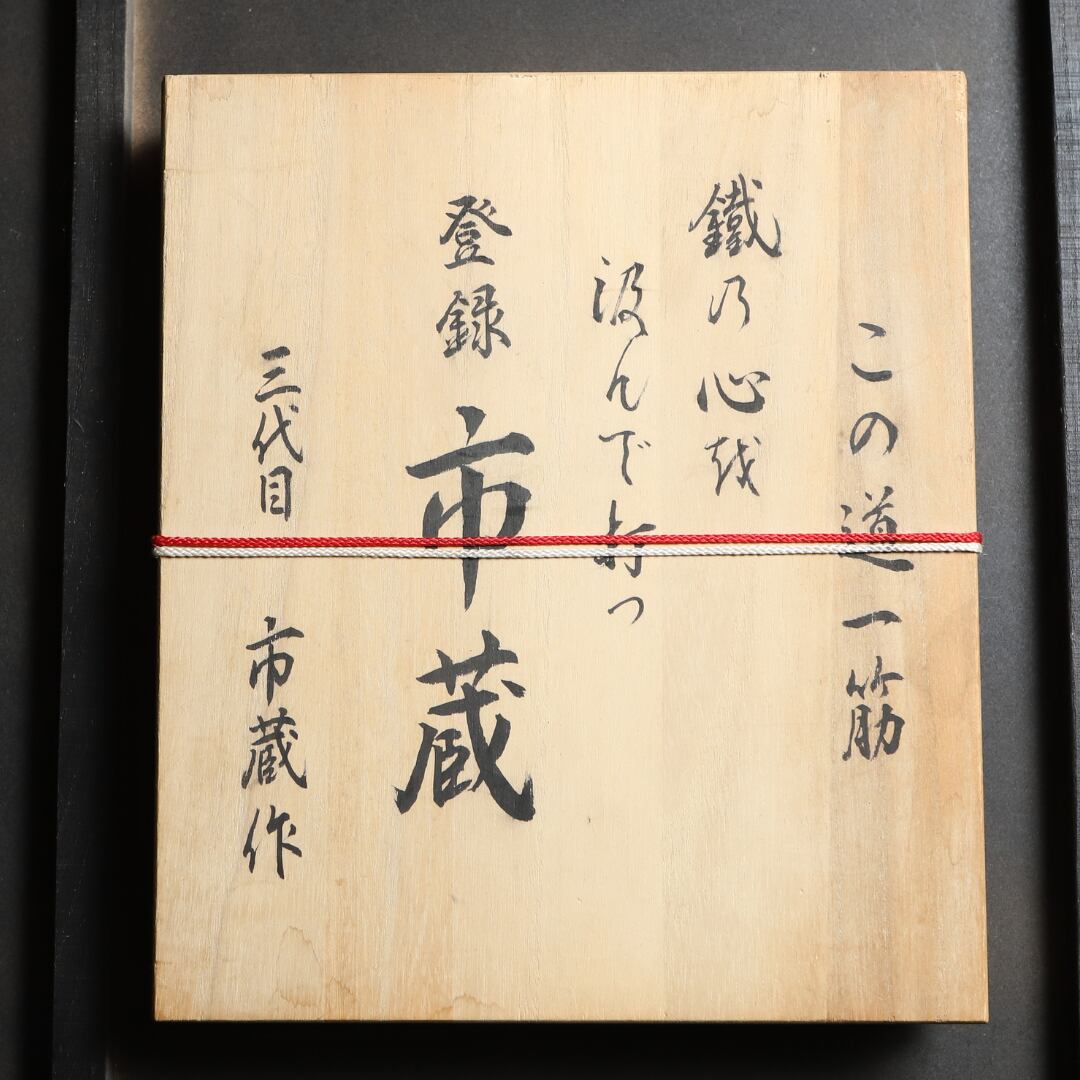 この道一筋
鐵乃心越
汲んで打つ
登録 市蔵
三代目 市蔵作